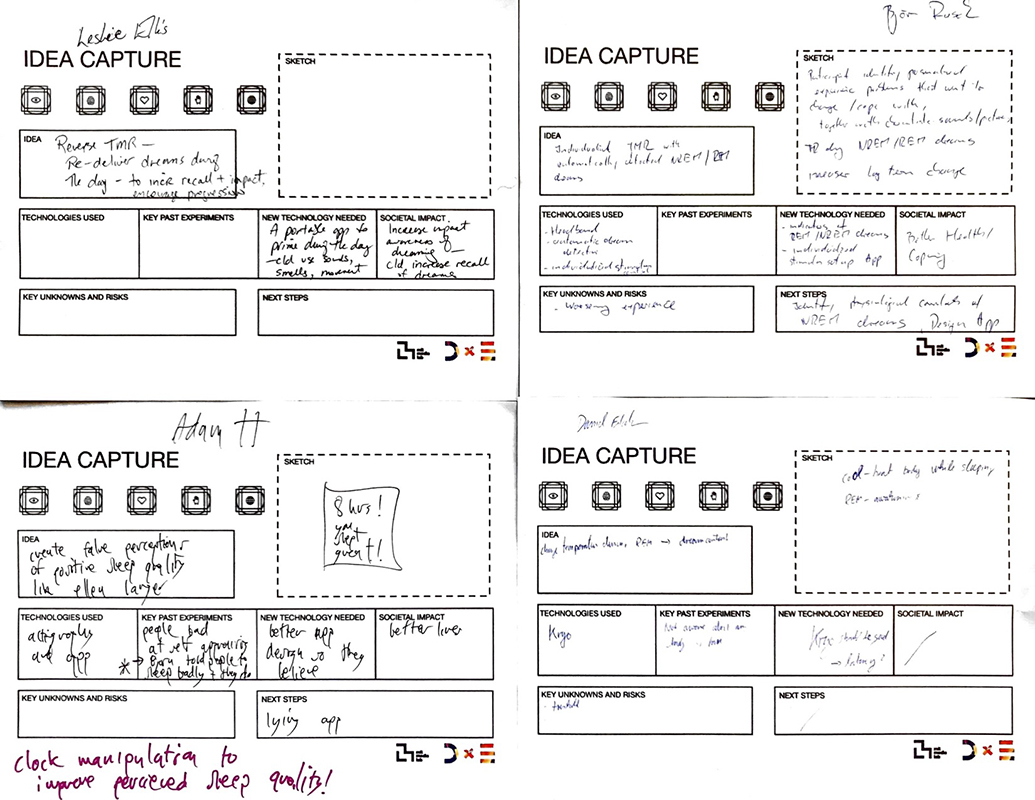 Leslie Ellis
IDEA CAPTURE
SKETCH
IDEA
Reverse TMR —
Re-deliver dreams during
the day - to incr recall + impact,
encourage progression
TECHNOLOGIES USED
KEY PAST EXPERIMENTS
NEW TECHNOLOGY NEEDED
A portable app to
prime during the day
- cld use sounds,
smells, movement
SOCIETAL IMPACT
Increase impact
awareness of
dreaming —
cld increase recall
of dreams
KEY UNKNOWNS AND RISKS
NEXT STEPS
IDEA CAPTURE
SKETCH
experience patterns that want to
change / cope with,
together with sounds/pictures
NREM/REM dreams
long term change
IDEA
Individualized TMR with
automatically detected NREM/REM
dreams
TECHNOLOGIES USED
- Headband
- automatic dream
detection
- individualized
KEY PAST EXPERIMENTS
NEW TECHNOLOGY NEEDED
- indicators of
REM/NREM dreams
- individualized
setup App
SOCIETAL IMPACT
Better Health/
Coping
KEY UNKNOWNS AND RISKS
- Worsening experience
NEXT STEPS
Identify physiological correlates of
NREM dreams, Design App
Adam H
IDEA CAPTURE
SKETCH
8 hrs!
you
slept
great!
IDEA
create false perceptions
of positive sleep quality
like ellen langer
TECHNOLOGIES USED
actigraphy
and app
KEY PAST EXPERIMENTS
people bad
at
* → told people to
sleep badly + they do
NEW TECHNOLOGY NEEDED
better app
design so they
believe
SOCIETAL IMPACT
better lives
KEY UNKNOWNS AND RISKS
NEXT STEPS
lying app
clock manipulation to
improve perceived sleep quality!
David
IDEA CAPTURE
SKETCH
cool-heat body while sleeping
REM-
IDEA
change temperature during REM → dream content
TECHNOLOGIES USED
Kryo
KEY PAST EXPERIMENTS
Not aware
NEW TECHNOLOGY NEEDED
Kryo should be good
→ latency?
SOCIETAL IMPACT
KEY UNKNOWNS AND RISKS
NEXT STEPS